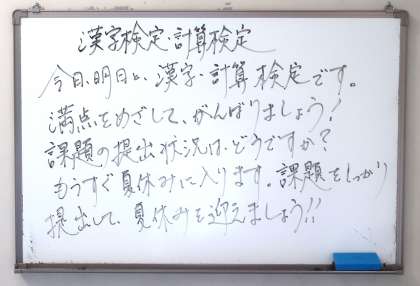 漢字検定・計算検定
今日、明日と、漢字・計算検定です。
満点をめざして、がんばりましょう!
課題の提出状況は、どうですか?
もうすぐ夏休みに入ります。課題をしっかり
提出して、夏休みを迎えましょう!!